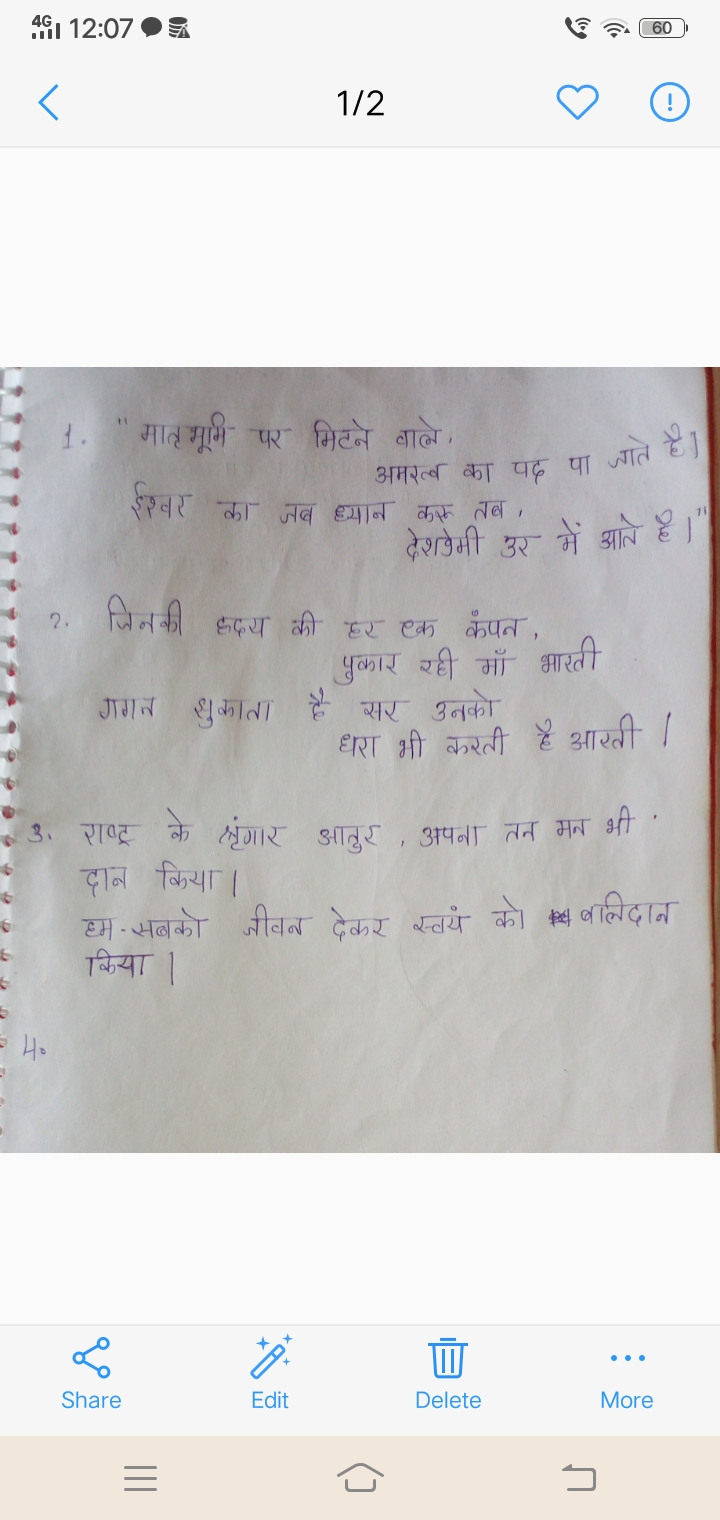 4G 12:07 60
1/2
1. " मातृभूमि पर मिटने वाले,
अमरत्व का पद पा जाते है।
ईश्वर का जब ध्यान करू तब,
देशप्रेमी उर में आते है।"
2. जिनकी हृदय की हर एक कंपन,
पुकार रही माँ भारती
गगन झुकाता है सर उनको
धरा भी करती है आरती ।
3. राष्ट्र के श्रृंगार आतुर, अपना तन मन भी
दान किया।
हम-सबको जीवन देकर स्वयं को बलिदान
किया।
4.
Share Edit Delete More